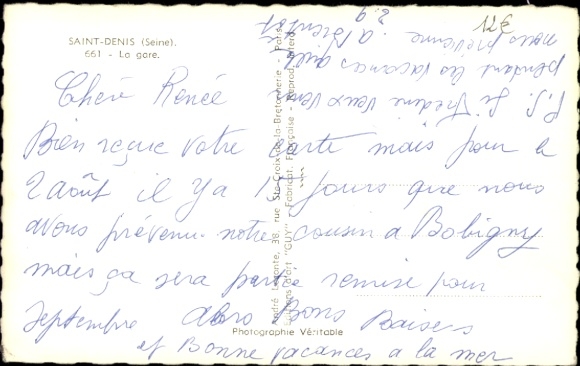 SAINT-DENIS (Seine).
661 - La gare.
12€
Chère Renée
Bien reçue votre carte mais pour le
2 août il y a 15 jours que nous
avons prévenu notre cousin a Bobigny
mais ça sera partie remise pour
Septembre alors Bons Baisers
et Bonne vacances a la mer
P.S. Si Frédéric veux venir
pendant les vacances
nous prévenir a Bientôt
André Leconte, 38, rue Ste-Croix-de-la-Bretonnerie - Paris
Editions d'art "GUY" - Fabricat. Française - Reprod. interd.
Photographie Véritable